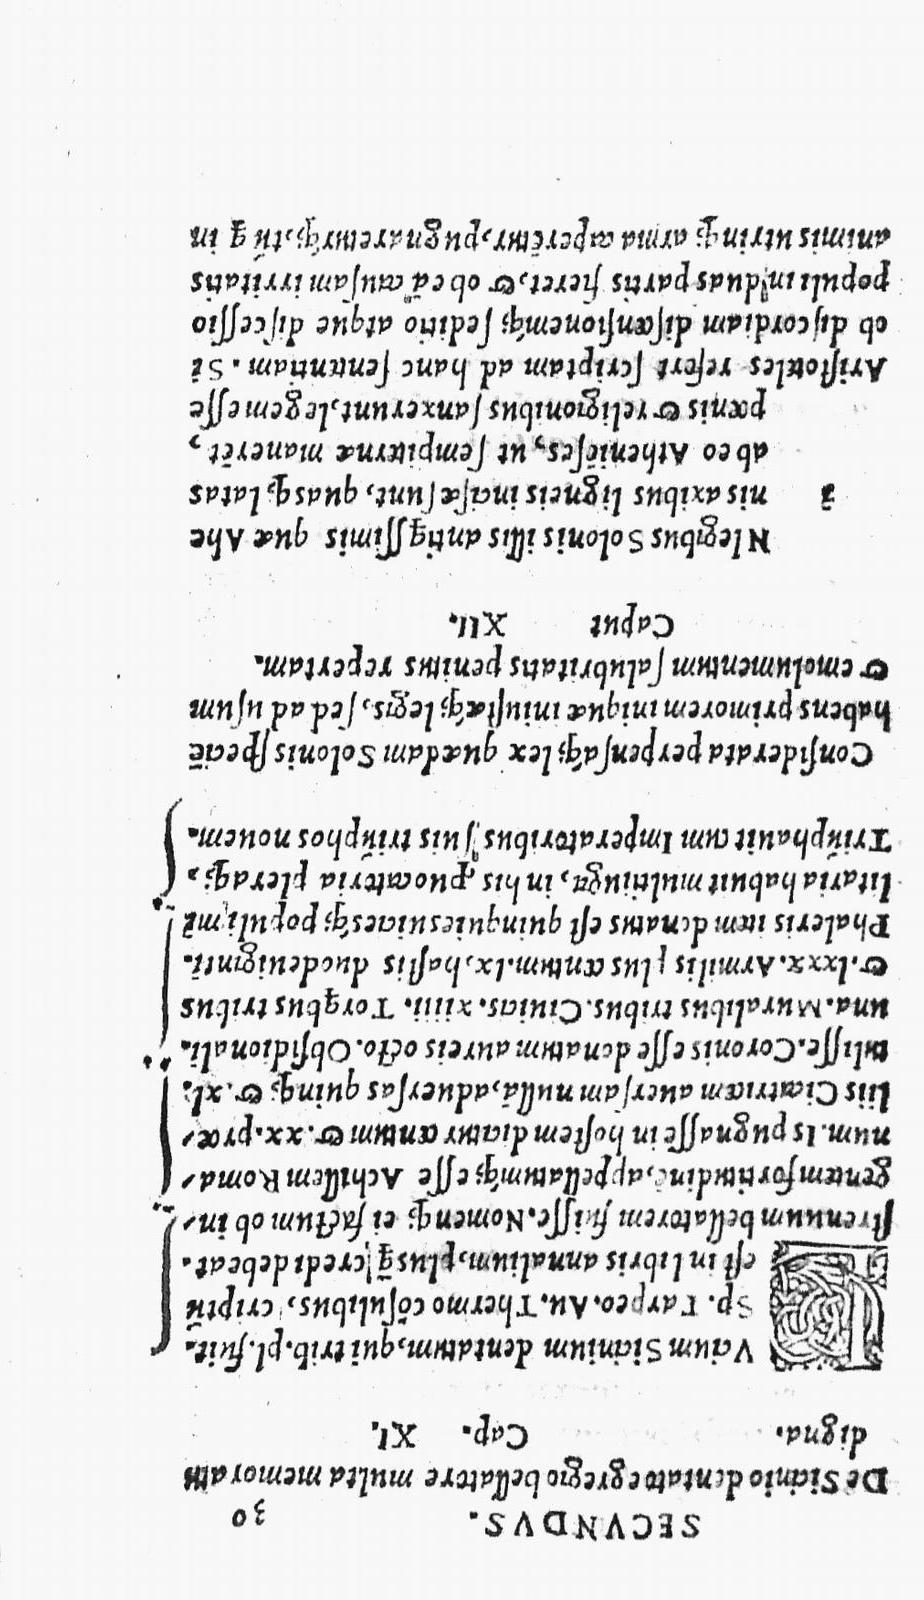 SECVNDVS. 30
De Sicinio dentato egregio bellatore multa memoratu
digna. Cap. XI.
Vcium Sicinium dentatum, qui trib. pl. fuit.
Sp. Tarpeo. Au. Thermo cõsulibus, criptũ
est in libris annalium, plusq̃ credi debeat.
strenuum bellatorem fuisse. Nomenq; ei factum ob in/
gentem fortitudinẽ, appellatumq́; esse Achillem Roma/
num. Is pugnasse in hostem dicitur centum &. xx. præ/
liis Cicatricem auersam nullã, aduersas quinq; &. xl.
tulisse. Coronis esse donatum aureis octo. Obsidionali.
una. Muralibus tribus. Ciuicis. xiiii. Torqbus tribus
&. lxxx. Armilis plus centum. lx, hastis duodeuiginti.
Phaleris item donatus est quinquiesuiciesq́; populi mi
litaria habuit multiiuga, in his ꝓuocatoria pleraq;,
Triũphauit cum Imperatoribus suis triũphos nouem.
Considerata perpensaq́; lex quædam Solonis speciẽ
habens primorem iniquæ iniustæq́; legis, sed ad usum
& emolumentum salubritatis penitus repertam.
Caput XII.
N legibus Solonis illis antiqssimis quæ Ahe
I nis axibus ligneis incisæ sunt, quasq; latas
ab eo Atheniẽses, ut sempiternæ manerẽt,
pœnis & religionibus sanxerunt, legem esse
Aristoteles refert scriptam ad hanc sententiam. Si
ob discordiam dissensionemq́; seditio atque discessio
populi in duas partis fieret, & ob eã causam irritatis
animis utrinq; arma caperẽtur, pugnareturq́;, tũ q in